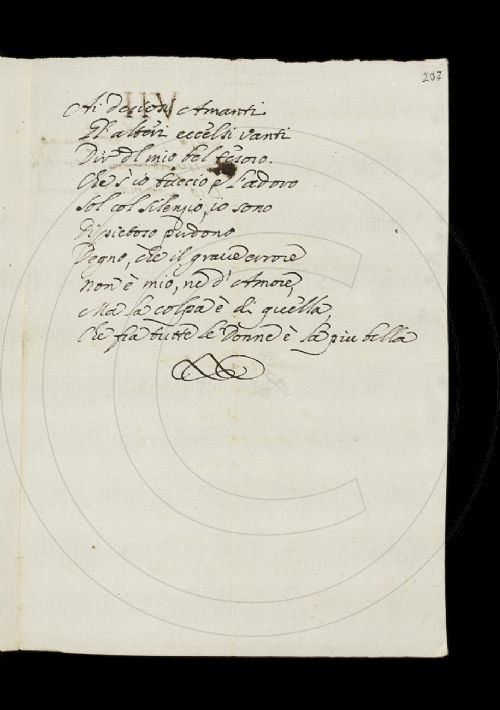 207
Ai desiosi Amanti
Gl'alteri eccelsi vanti
Dir del mio bel tesoro.
Che s'io taccio, e l'adoro
Sol col silenzio, io sono
Di pietoso perdono
Degno, che il grave errore
Non è mio, ne d'Amore,
Ma la colpa è di quella,
Che fra tutte le Donne è la piu bella